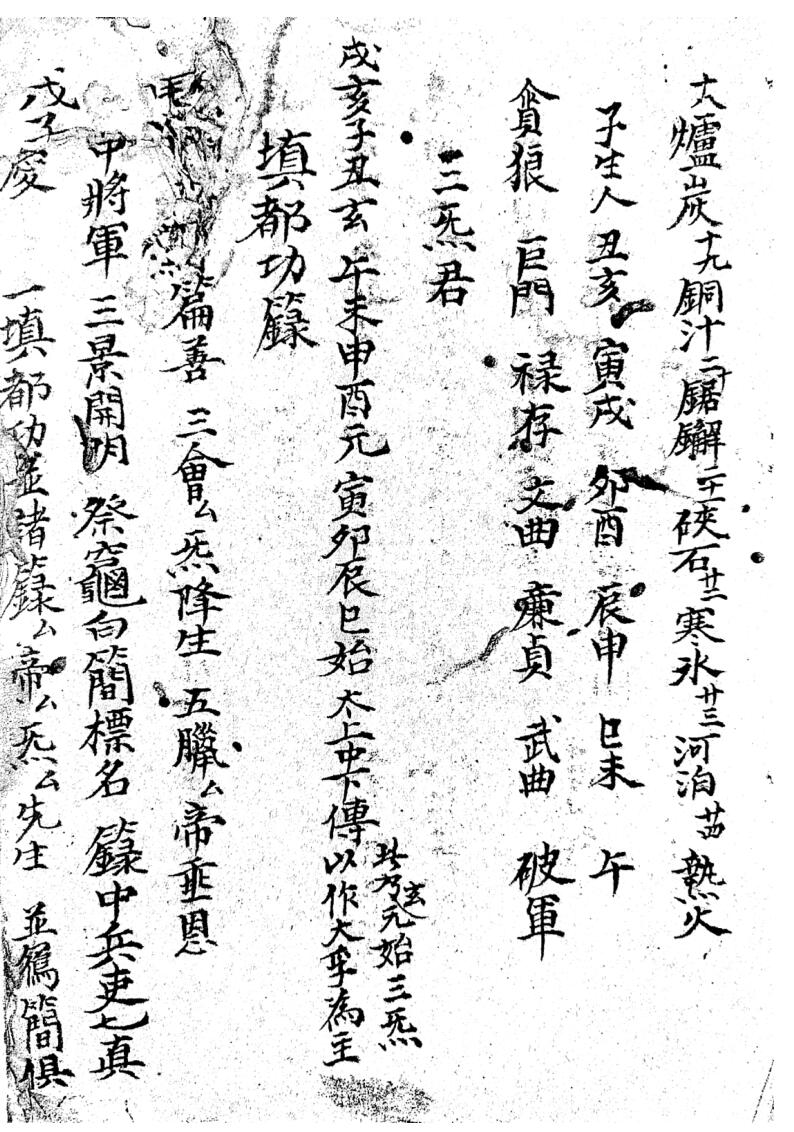 十八爐炭十九銅汁二十鋸觧二十一硤石廿二寒氷廿三河泊廿四熱火
子生人 丑亥 寅戌 卯酉 辰申 巳未 午
貪狼 巨門 禄存 文曲 廉貞 武曲 破軍
三炁君
此乃玄元始三炁
戌亥子丑玄 午未申酉元 寅卯辰巳始 太上中下傳以作大孚為主
填都功籙
篇善 三會厶炁降生 五臘厶帝垂恩
中將軍 三景開明 祭竈白簡標名 籙中兵吏七真
戊子度 一填都功並諸籙厶帝厶炁厶先生 並篤簡俱